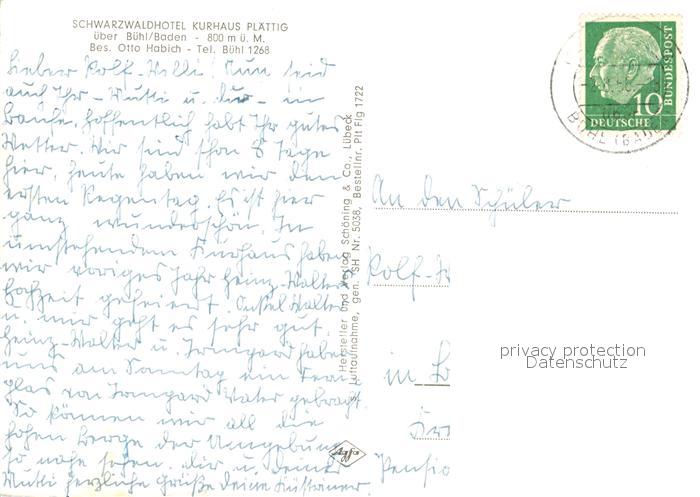 SCHWARZWALDHOTEL KURHAUS PLÄTTIG
über Bühl/Baden - 800 m ü. M.
Bes. Otto Habich - Tel. Bühl 1268
Lieber Rolf-Willi! Nun seid
auch Ihr - Mutti u. du - in
hoffentlich habt Ihr gutes
Wetter. Wir sind schon 8 Tage
hier, heute haben wir den
ersten Regentag. Es ist hier
ganz wunderschön. Im
umstehenden Kurhaus haben
wir voriges Jahr Heinz-Walters
Hochzeit gefeiert. Onkel Walter
u. mir geht es sehr gut.
Heinz-Walter u. Irmgard haben
uns am Sonntag ein Fern-
glas von Irmgard Vater gebracht.
So können wir all die
hohen Berge der Umgebung
so nahe sehen. Dir u. deiner
Mutti herzliche Grüße deine
Hersteller und Verlag Schöning & Co., Lübeck
Luftaufnahme, gen. SH Nr. 5038, Bestellnr. Plt Flg 1722
Agfa
10
DEUTSCHE
BUNDESPOST
BÜHL (BADEN)
An den Schüler
Rolf-
in
Pensio
privacy protection
Datenschutz